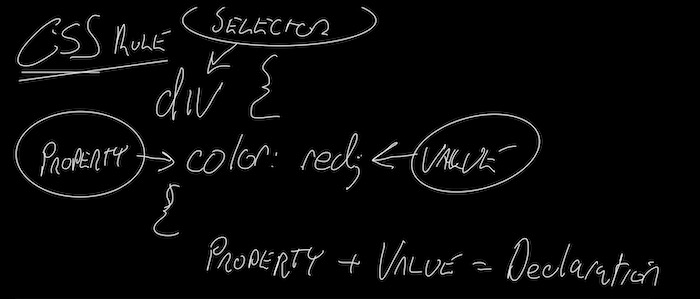 CSS RULE
SELECTOR
div {
PROPERTY → color: red; ← VALUE
{
PROPERTY + VALUE = Declaration